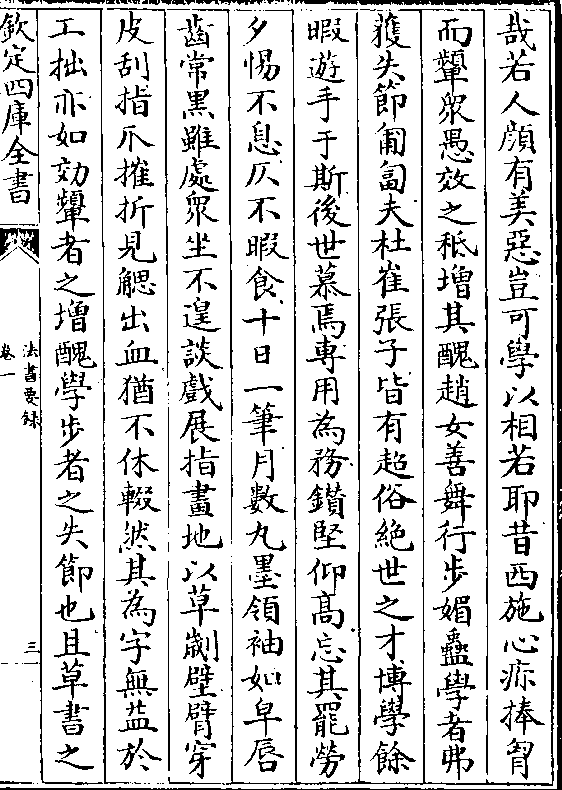 哉若人顔有美惡豈可學以相若耶昔西施心疹捧胷
而顰衆愚效之秪增其醜趙女善舞行步媚蠱學者弗
獲失節匍匐夫杜崔張子皆有超俗絶世之才博學餘
暇遊手于斯後世慕焉専用為務鑽堅仰髙忘其罷勞
夕惕不息仄不暇食十日一筆月數丸墨領袖如皁唇
齒常黒雖處衆坐不遑談戲展指畫地以草劌壁臂穿
皮刮指爪摧折見䚡出血猶不休輟然其為字無益於
工拙亦如効顰者之增醜學步者之失節也且草書之
欽定四庫全書
法書要録
卷一
三